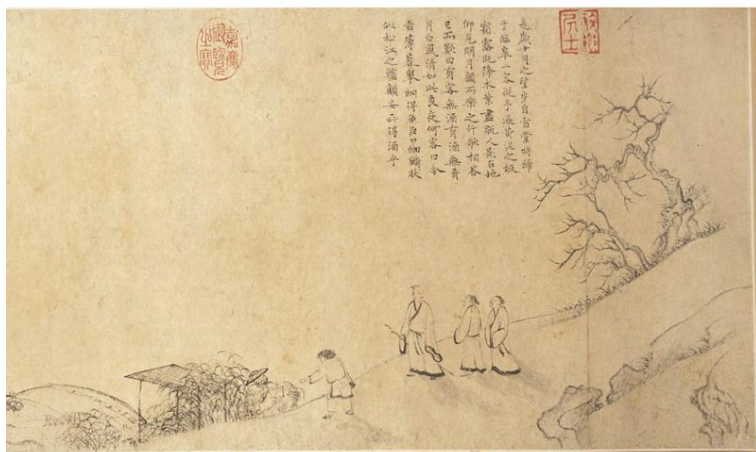 居士
是歲十月之望步自雪堂將歸
于臨皋二客從予過黃泥之坂
霜露既降木葉盡脫人影在地
仰見明月顧而樂之行歌相答
已而歎曰有客無酒有酒無肴
月白風清如此良夜何客曰今
者薄暮舉網得魚巨口細鱗狀
似松江之鱸顧安所得酒乎
嘉慶御覽之寶